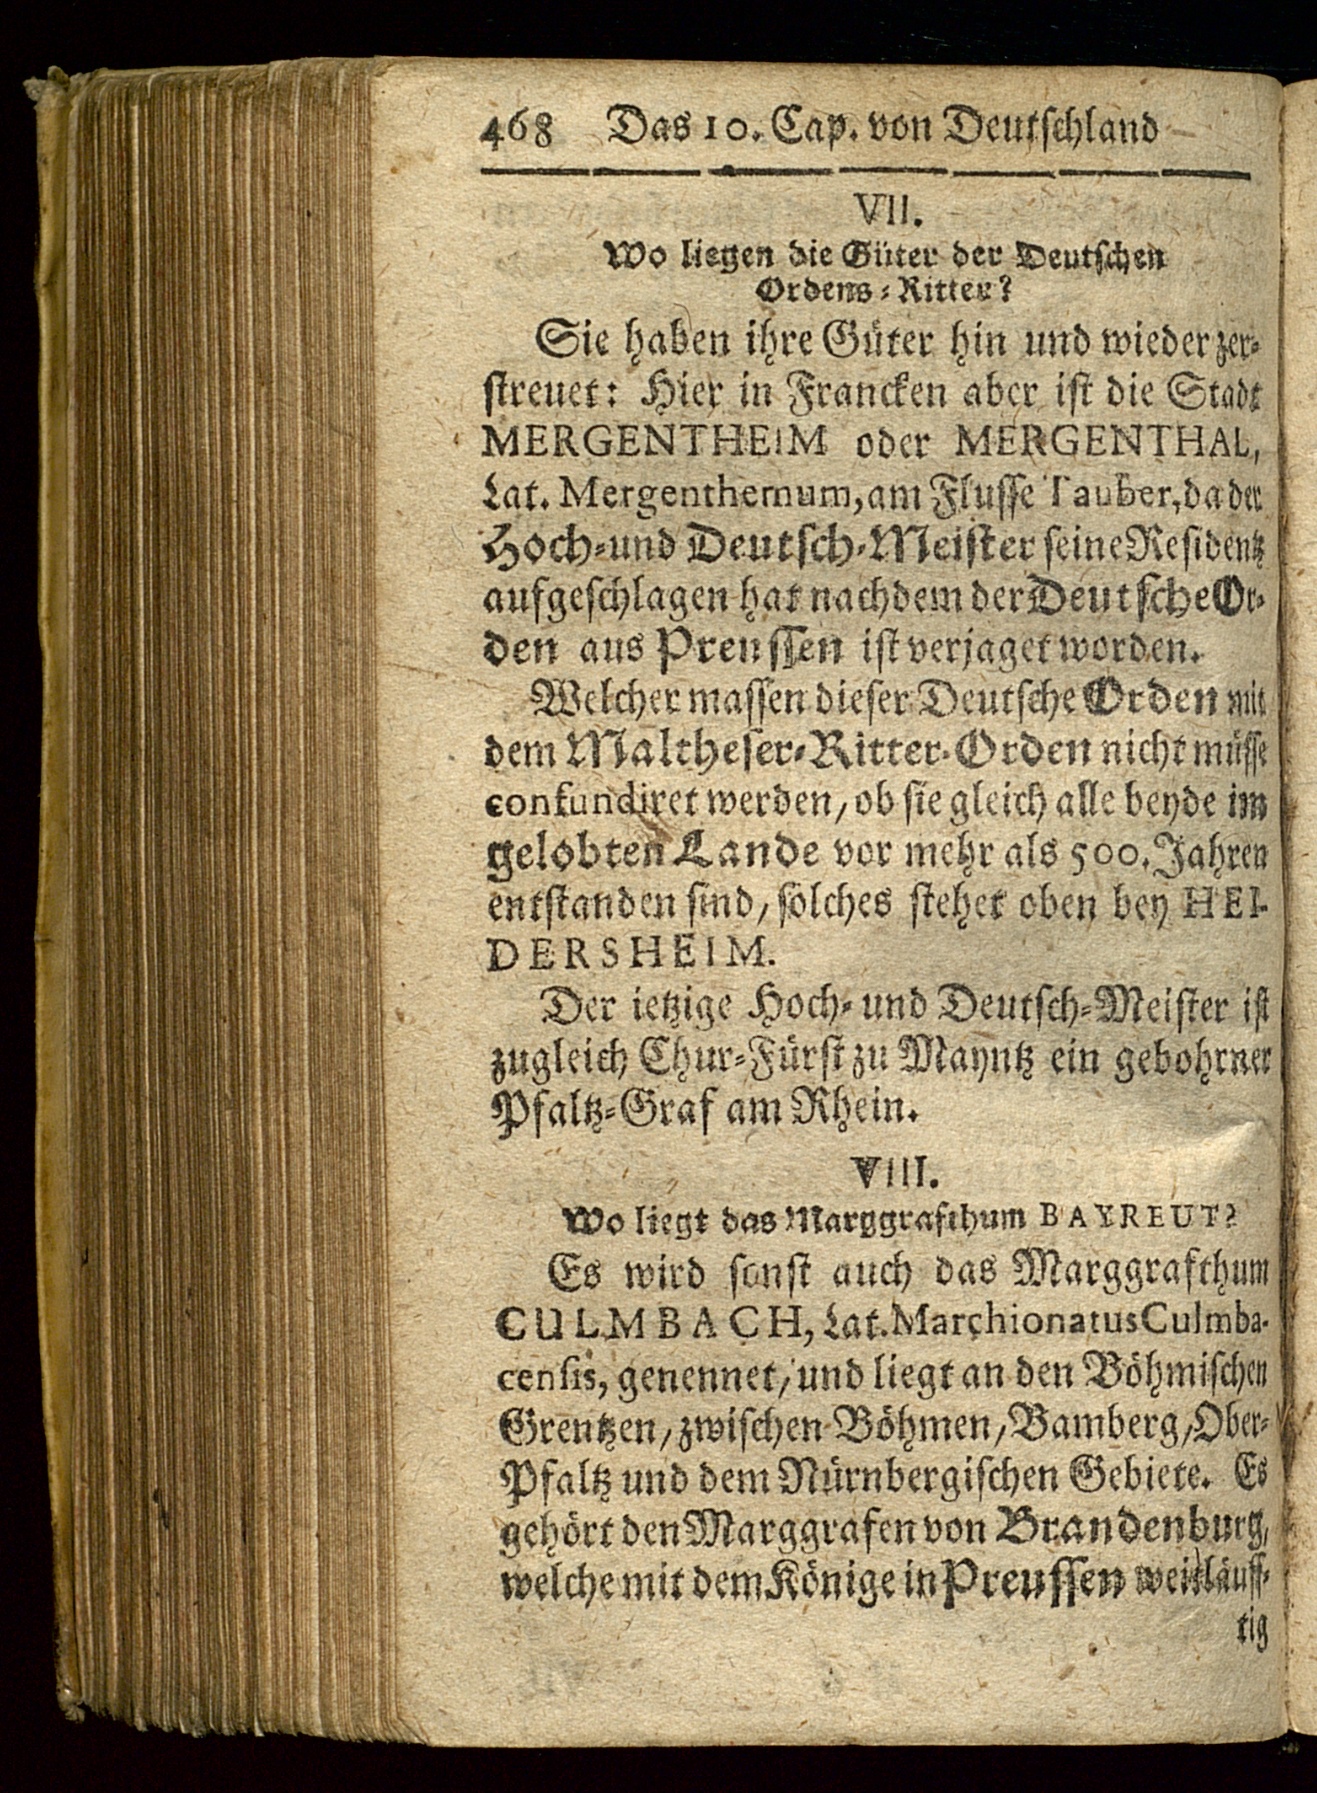 468 Das 10. Cap. von Deutschland
VII.
Wo liegen die Güter der Deutschen
Ordens-Ritter?
Sie haben ihre Güter hin und wieder zer-
streuet: Hier in Francken aber ist die Stadt
MERGENTHEIM oder MERGENTHAL,
Lat. Mergenthemum, am Flusse Tauber, da der
Hoch-und Deutsch-Meister seine Residentz
aufgeschlagen hat nachdem der Deutsche Or-
den aus Preussen ist verjaget worden.
Welcher massen dieser Deutsche Orden mit
dem Maltheser-Ritter-Orden nicht müsse
confundiret werden, ob sie gleich alle beyde im
gelobten Lande vor mehr als 500. Jahren
entstanden sind, solches stehet oben bey HEI-
DERSHEIM.
Der ietzige Hoch- und Deutsch-Meister ist
zugleich Chur-Fürst zu Mayntz ein gebohrner
Pfaltz-Graf am Rhein.
VIII.
Wo liegt das Marggrafthum BAYREUT?
Es wird sonst auch das Marggrafthum
CULMBACH, Lat. Marchionatus Culmba-
censis, genennet, und liegt an den Böhmischen
Grentzen, zwischen Böhmen, Bamberg, Ober-
Pfaltz und dem Nürnbergischen Gebiete. Es
gehört den Marggrafen von Brandenburg,
welche mit dem Könige in Preussen weitläuff-
tig